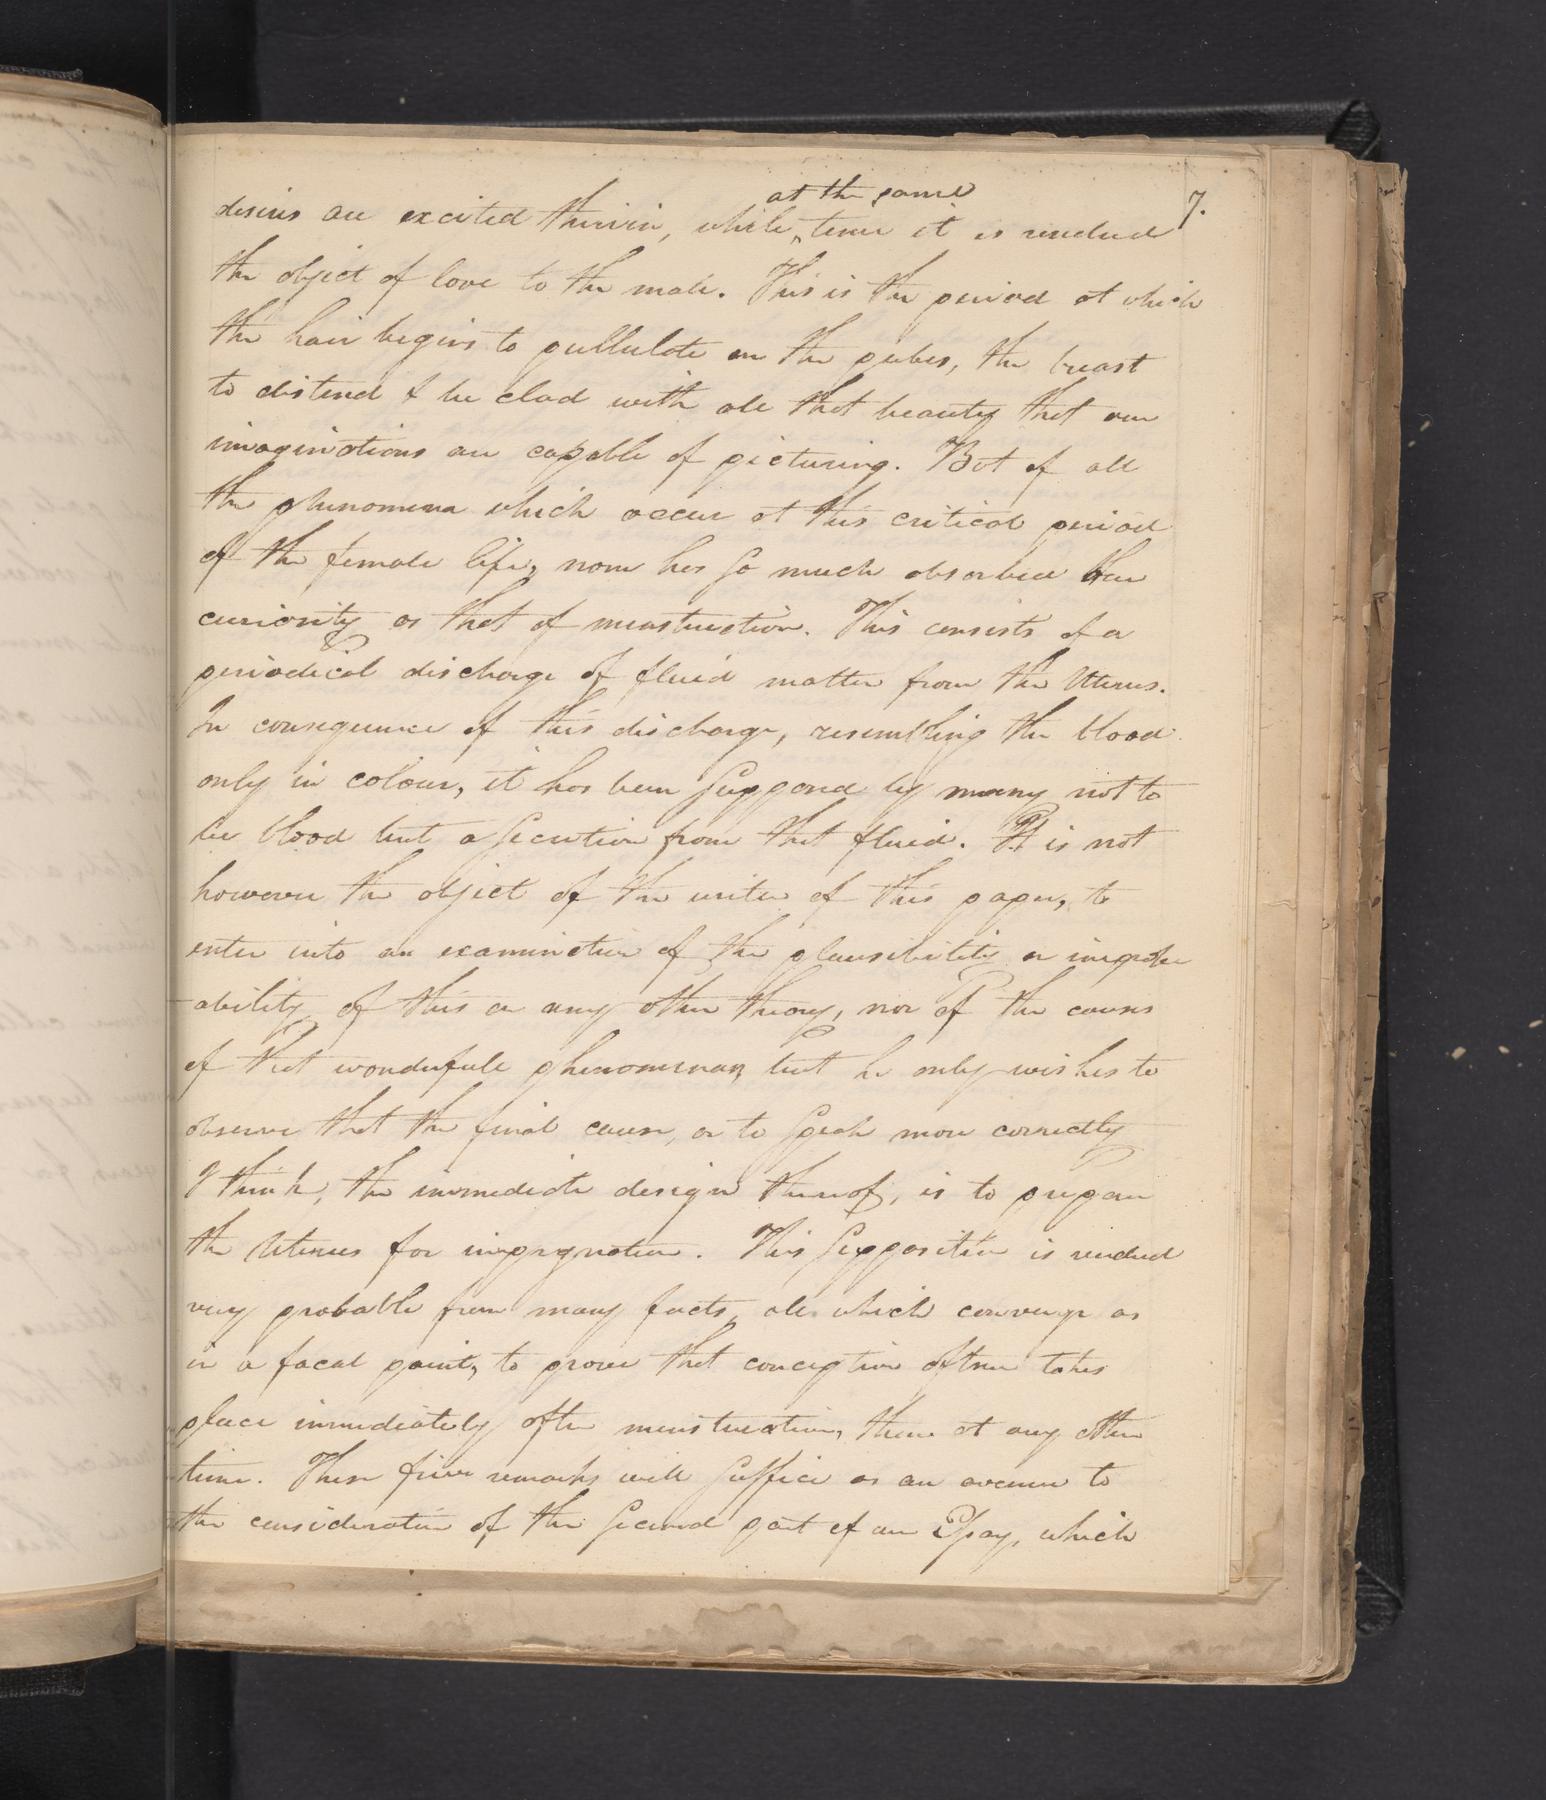 7.
at the same
desires are excited therein, while ^ time it is rendered
the object of love to the male. This is the period at which
the hair begins to pullulate on the pubes, the breast
to distend & be clad with all that beauty that our
imaginations are capable of picturing. But of all
the phenomena which occur at this critical period
of the female life, none has so much absorbed their
curiosity as that of menstruation. This consists of a
periodical discharge of fluid matter from the Uterus.
In consequence of this discharge, resembling the blood
only in colour, it has been supposed by many not to
be blood but a secretion from that fluid. It is not
however the object of the writer of this paper, to
enter into an examination of the plausibility or improb
ability of this or any other theory, nor of the causes
of that wonderfull phenomenan, but he only wishes to
observe that the final cause, or to speak more correctly
I think, the immediate design thereof, is to prepare
the Uterus for impregnation. This supposition is rendered
very probable from many facts, all which converge as
in a focal point, to prove that conception oftner takes
place immediately after menstruation, than at any other
time. These few remarks will suffice as an avenue to
the consideration of the second part of our Essay, which